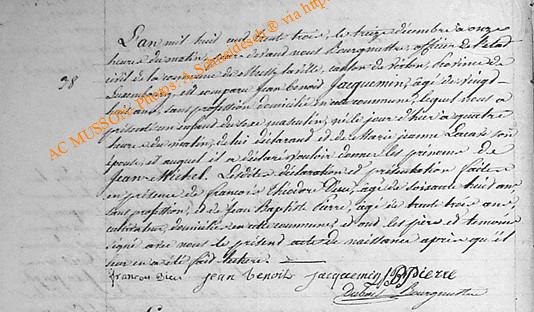 38
L'an mil huit cent trente trois, le treize décembre à onze
heures du matin, pardevant nous Bourgmestre, officier de l'état
civil de la commune de Mussy la ville, canton de Virton, province de
Luxembourg, est comparu Jean Benoit Jacquemin, âgé de vingt
huit ans, sans profession, domicilié en cette commune, lequel nous a
présenté un enfant du sexe masculin, né le jour d'hier à quatre
heures du matin, de lui déclarant et de Marie Jeanne Lucas son
épouse, et auquel il a déclaré vouloir donner les prénoms de
Jean Michel. Lesdites déclaration et présentation faites
en présence de françois Théodore Dieu, âgé de soixante huit ans
sans profession, et de Jean Baptiste Pierre, âgé de trente trois ans,
cultivateur, domiciliés en cette commune, et ont les père et témoins
signé avec nous le présent acte de naissance après qu'il
leur en a été fait lecture.
françois Dieu Jean Benoit Jacquemin JB Pierre
Dubois Bourgmestre
AC MUSSON, Photos: A. Schneidesch © via http